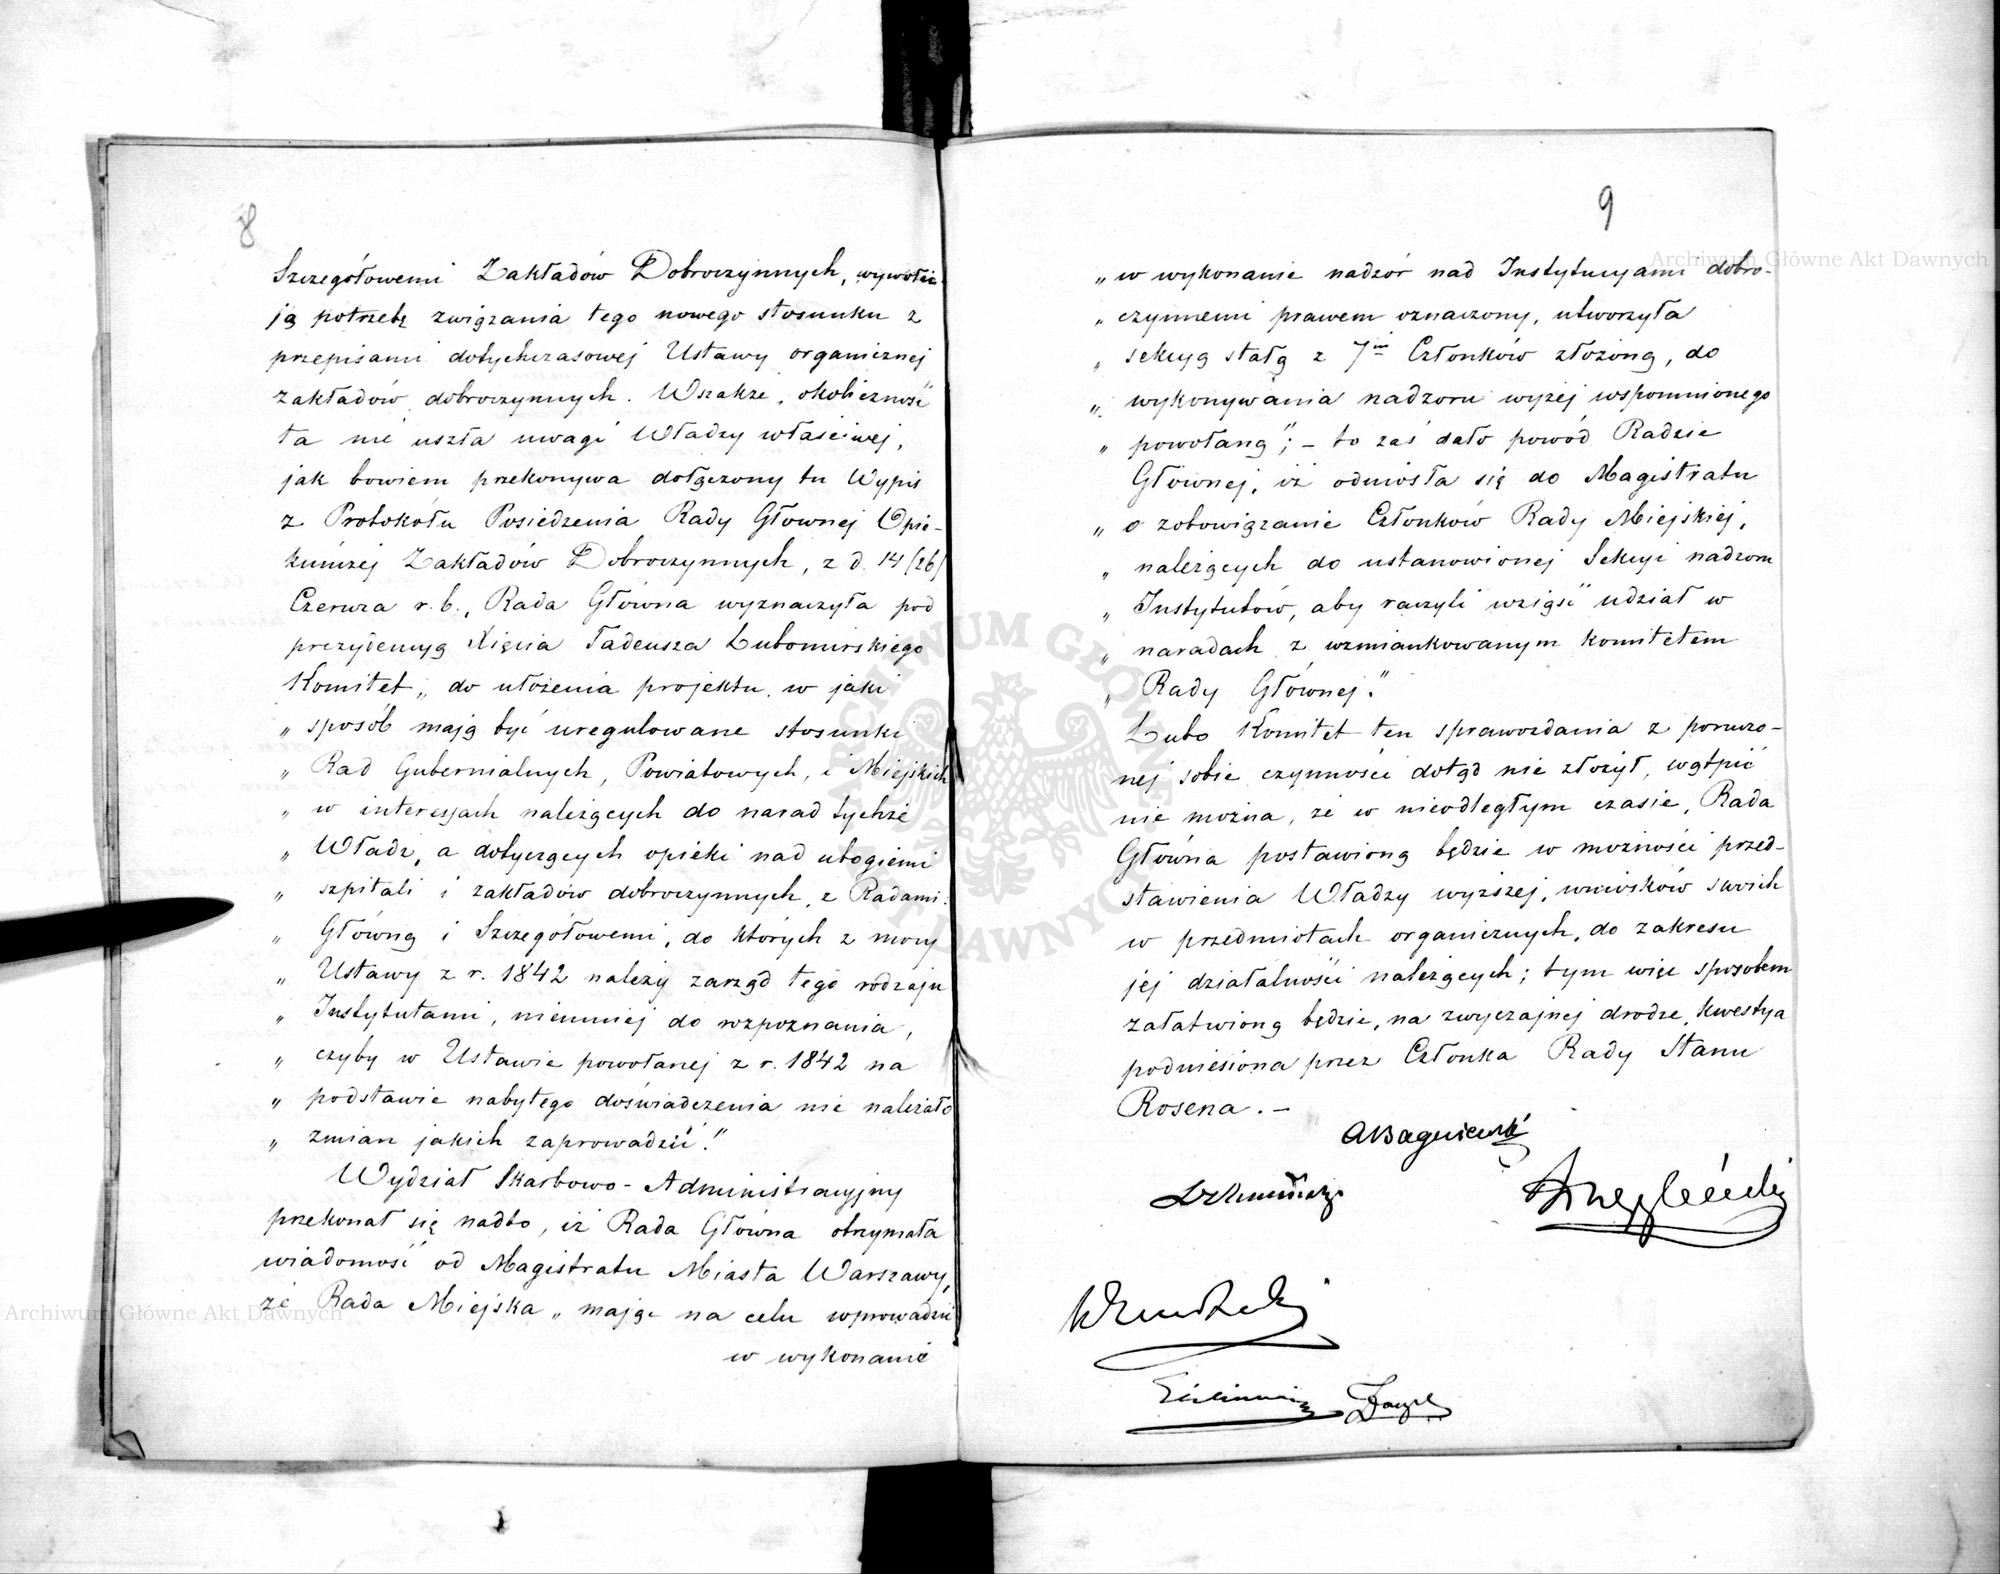 8
Szczegółowemi Zakładów Dobroczynnych, wywołu-
ją potrzebę związania tego nowego stosunku z
przepisami dotychczasowej Ustawy organicznej
zakładów dobroczynnych. Wszakże, okoliczność
ta nie uszła uwagi Władzy właściwej,
jak bowiem przekonywa dołączony tu Wypis
z Protokołu Posiedzenia Rady Głownej Opie-
kuńczej Zakładów Dobroczynnych, z d. 14/26/
Czerwca r. b., Rada Główna wyznaczyła pod
prezydencyą Xięcia Tadeusza Lubomirskiego
Komitet „do ułożenia projektu, w jaki
„ sposób mają być uregulowane stosunki
„ Rad Gubernialnych, Powiatowych, i Miejskich
„ w interessach należących do narad tychże
„ Władz, a dotyczących opieki nad ubogiemi
„ szpitali i zakładów dobroczynnych, z Radami:
„ Główną i Szczegółowemi, do których z mocy
„ Ustawy z r. 1842 należy zarząd tego rodzaju
„ Instytutami, niemniej do rozpoznania,
„ czyby w Ustawie powołanej z r. 1842 na
„ podstawie nabytego doświadczenia nie należało
„ zmian jakich zaprowadzić."
Wydział Skarbowo-Administracyjny
przekonał się nadto, iż Rada Główna otrzymała
wiadomość od Magistratu Miasta Warszawy,
że Rada Miejska „mając na celu wprowadzić
w wykonanie
9
„ w wykonanie nadzór nad Instytucyami dobro-
„ czynnemi prawem oznaczony, utworzyła
„ sekcyą stałą z 7iu Członków złożoną, do
„ wykonywania nadzoru wyżej wspomnionego
„ powołaną"; – to zaś dało powód Radzie
Głównej, iż odniosła się do Magistratu
„ o zobowiązanie Członków Rady Miejskiej,
„ należących do ustanowionej Sekcyi nadzoru
„ Instytutów, aby raczyli wziąść udział w
„ naradach z wzmiankowanym komitetem
„ Rady Głównej."
Lubo Komitet ten sprawozdania z poruczo-
nej sobie czynności dotąd nie złożył, wątpić
nie można, że w nieodległym czasie, Rada
Główna postawioną będzie w możności przed-
stawienia Władzy wyższej, wniosków swoich
w przedmiotach organicznych, do zakresu
jej działalności należących; tym więc sposobem
załatwioną będzie, na zwyczajnej drodze, kwestya
podniesiona przez Członka Rady Stanu
Rosena. –
Archiwum Główne Akt Dawnych
Archiwum Główne Akt Dawnych
ARCHIWUM GŁÓWNE AKT DAWNYCH